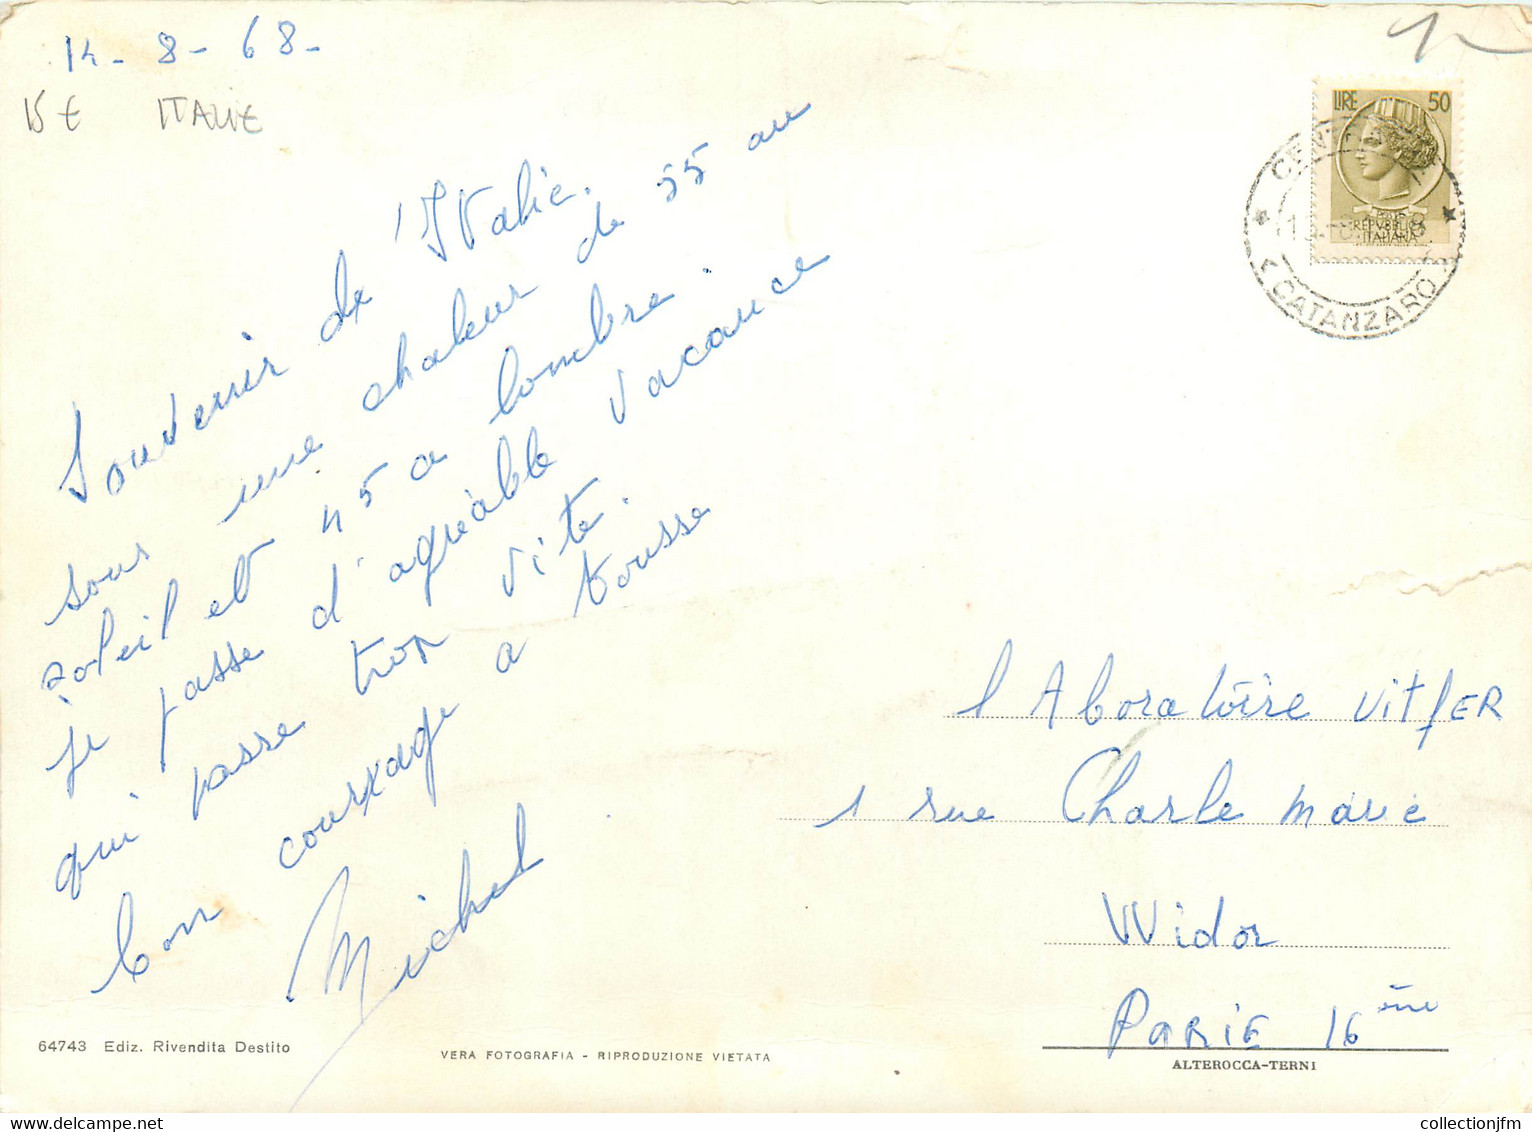 14 - 8 - 68 -
15 € ITALIE
Souvenir de l'Italie.
sous une chaleur de 55 au
soleil et 45 a lombre.
je passe d'agréable vacance
qui passe trop vite.
bon courrage a tousse
Michel
LIRE 50
REPVBBLICA
ITALIANA
CATANZARO
l Aboratoire VitfER
1 rue Charle Marie
Widor
PARIE 16 ème
64743 Ediz. Rivendita Destito
VERA FOTOGRAFIA - RIPRODUZIONE VIETATA
ALTEROCCA-TERNI
collectionjfm